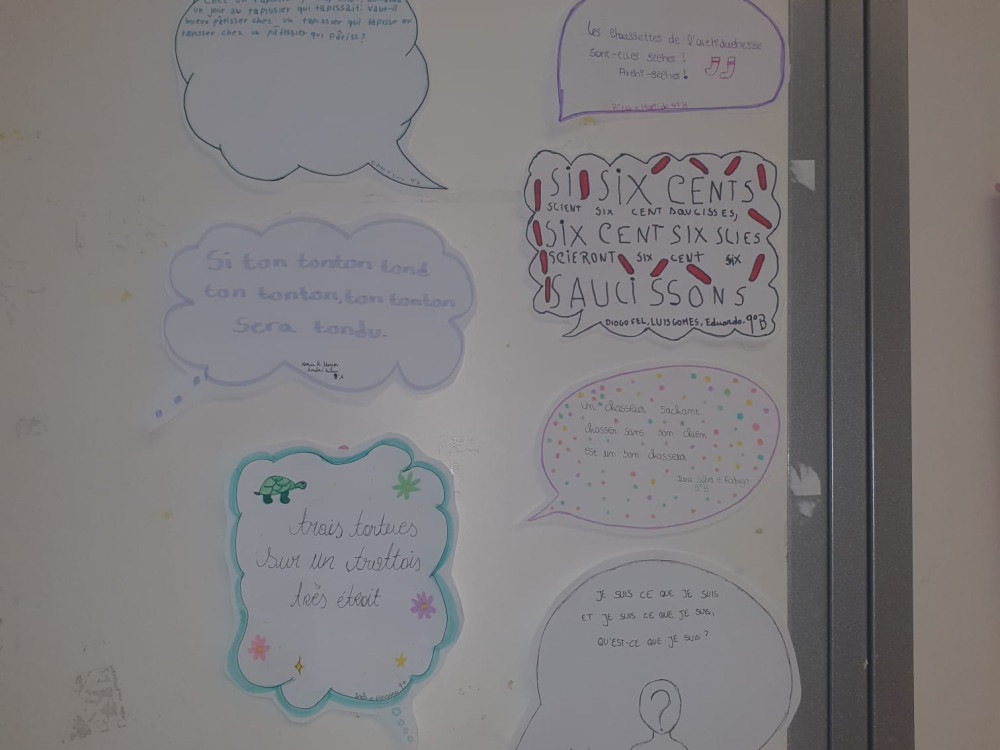 un jour au tapissier qui tapissait: vaut-il
mieux pâtisser chez un tapissier qui tapisse ou
tapisser chez un pâtissier qui pâtiss?
Les chaussettes de l'archiduchesse
Sont-elles sèches?
Archi-sèches!
Si six cents
scient six cent saucisses,
six cent six scies
scieront six cent six
saucissons
Diogo Fel, Luis Gomes, Eduardo. 9ºB
Si ton tonton tond
ton tonton, ton tonton
sera tondu.
un chasseur sachant
chasser sans son chien
est un bon chasseur
e Rodrigo
trois tortues
sur un trottois
très étroit
JE SUIS CE QUE JE SUIS
ET JE SUIS CE QUE JE SUIS,
QU'EST-CE QUE JE SUIS?
?